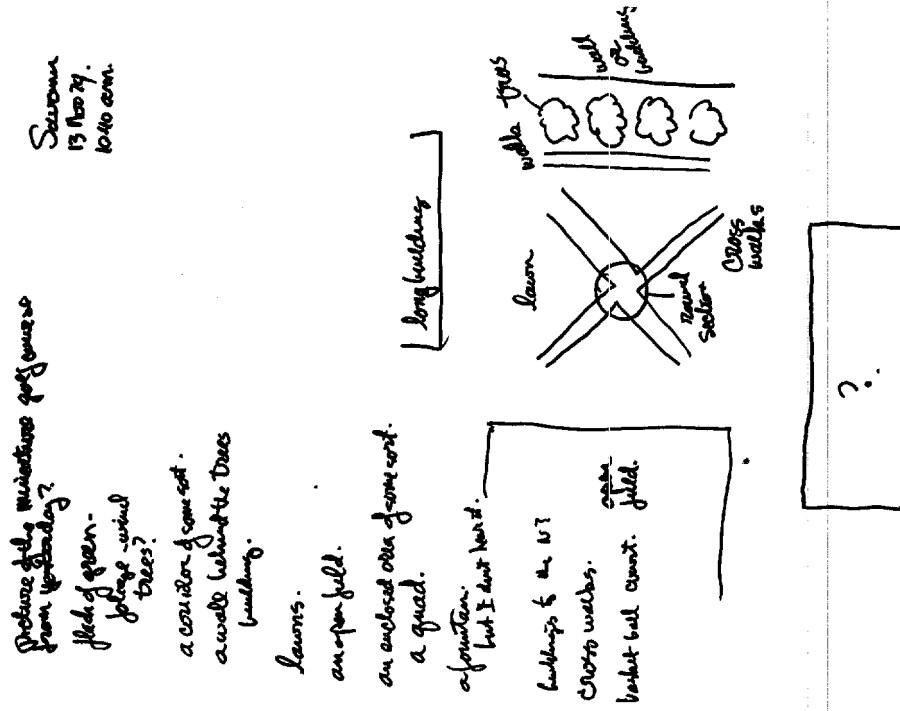 13 Nov 79.
1040 am.
picture of the miniature golf course
from yesterday?
flash of green -
foliage - wind
trees?
a corridor of some sort.
a wall behind the trees
building.
lawns.
an open field.
an enclosed area of some sort.
a quad.
a fountain.
but I don't hear it.
buildings to the W?
cross walks.
basket ball court.
field.
long building
lawn
round
section
Cross
walks
walk
trees
wall
or
building
?